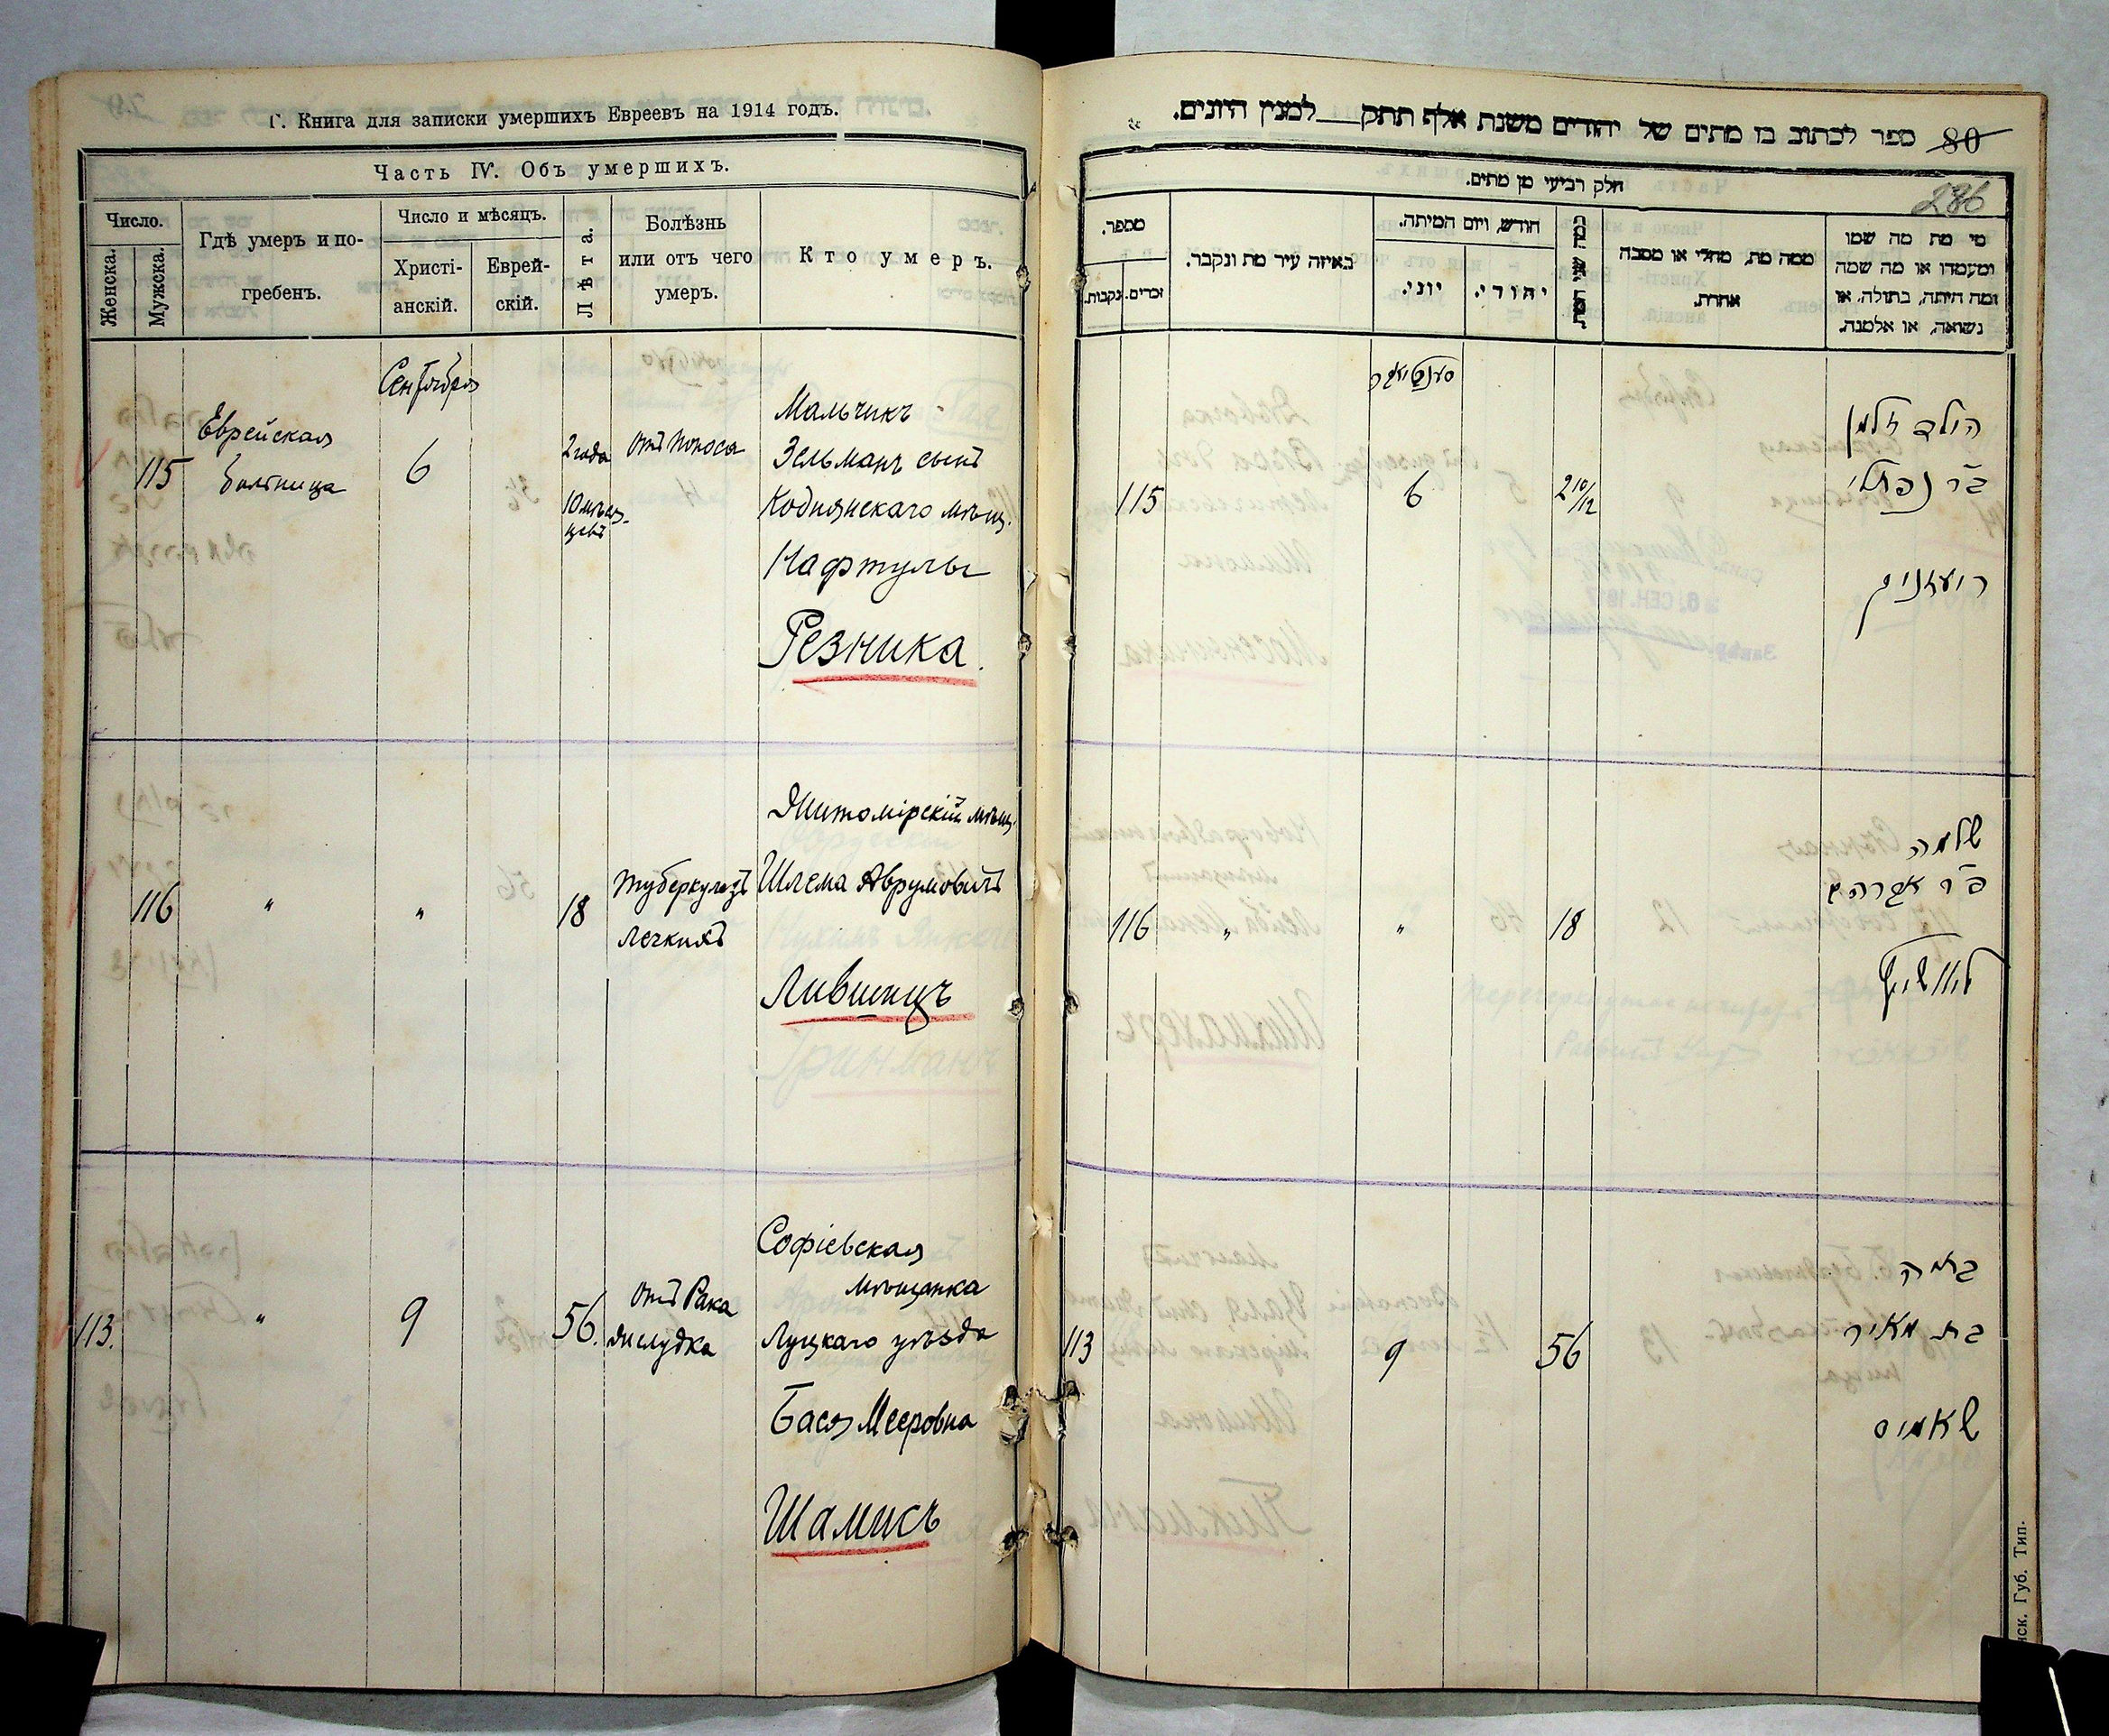 Г. Книга для записки умершихъ Евреевъ на 1914 годъ.
Часть IV. Объ умершихъ.
Число.
Женска.
Мужска.
Гдѣ умеръ и по-
гребенъ.
Число и мѣсяцъ.
Христі-
анскій.
Еврей-
скій.
Лѣта.
Болѣзнь
или отъ чего
умеръ.
Кто умеръ.
Сентября
115
Еврейская
больница
6
2 года
10 мѣся-
цевъ
Отъ поноса
Мальчикъ
Зельманъ сынъ
Коднянскаго мѣщ.
Нафтулы
Резника.
116
"
"
18
Туберкулезъ
легкихъ
Житомірскій мѣщ.
Шлема Аврумовичъ
Лившицъ
113.
"
9
56.
Отъ Рака
желудка
Софіевская
мѣщанка
Луцкаго уѣзда
Бася Мееровна
Шамисъ
ספר לכתוב בו מתים של יהודים משנת אלף תתק למנין היונים.
80
286
חלק רביעי מן מתים.
מספר.
נקבות.
זכרים.
באיזה עיר מת ונקבר.
חודש, ויום המיתה.
יוני.
יהודי.
ממה מת, מחלי או מסבה
אחרת.
מי מת מה שמו
ומעמדו או מה שמה
ומה היתה, בתולה, או
נשואה, או אלמנה.
סענטיאבר
115
6
2 10/12
הילד זלמן
ב״ר נפתלי
רעזניק
116
"
"
18
שלמה
ב״ר אברהם
ליוושיץ
113
9
56
בסיה
בת מאיר
שאמיס
нск. Губ. Тип.